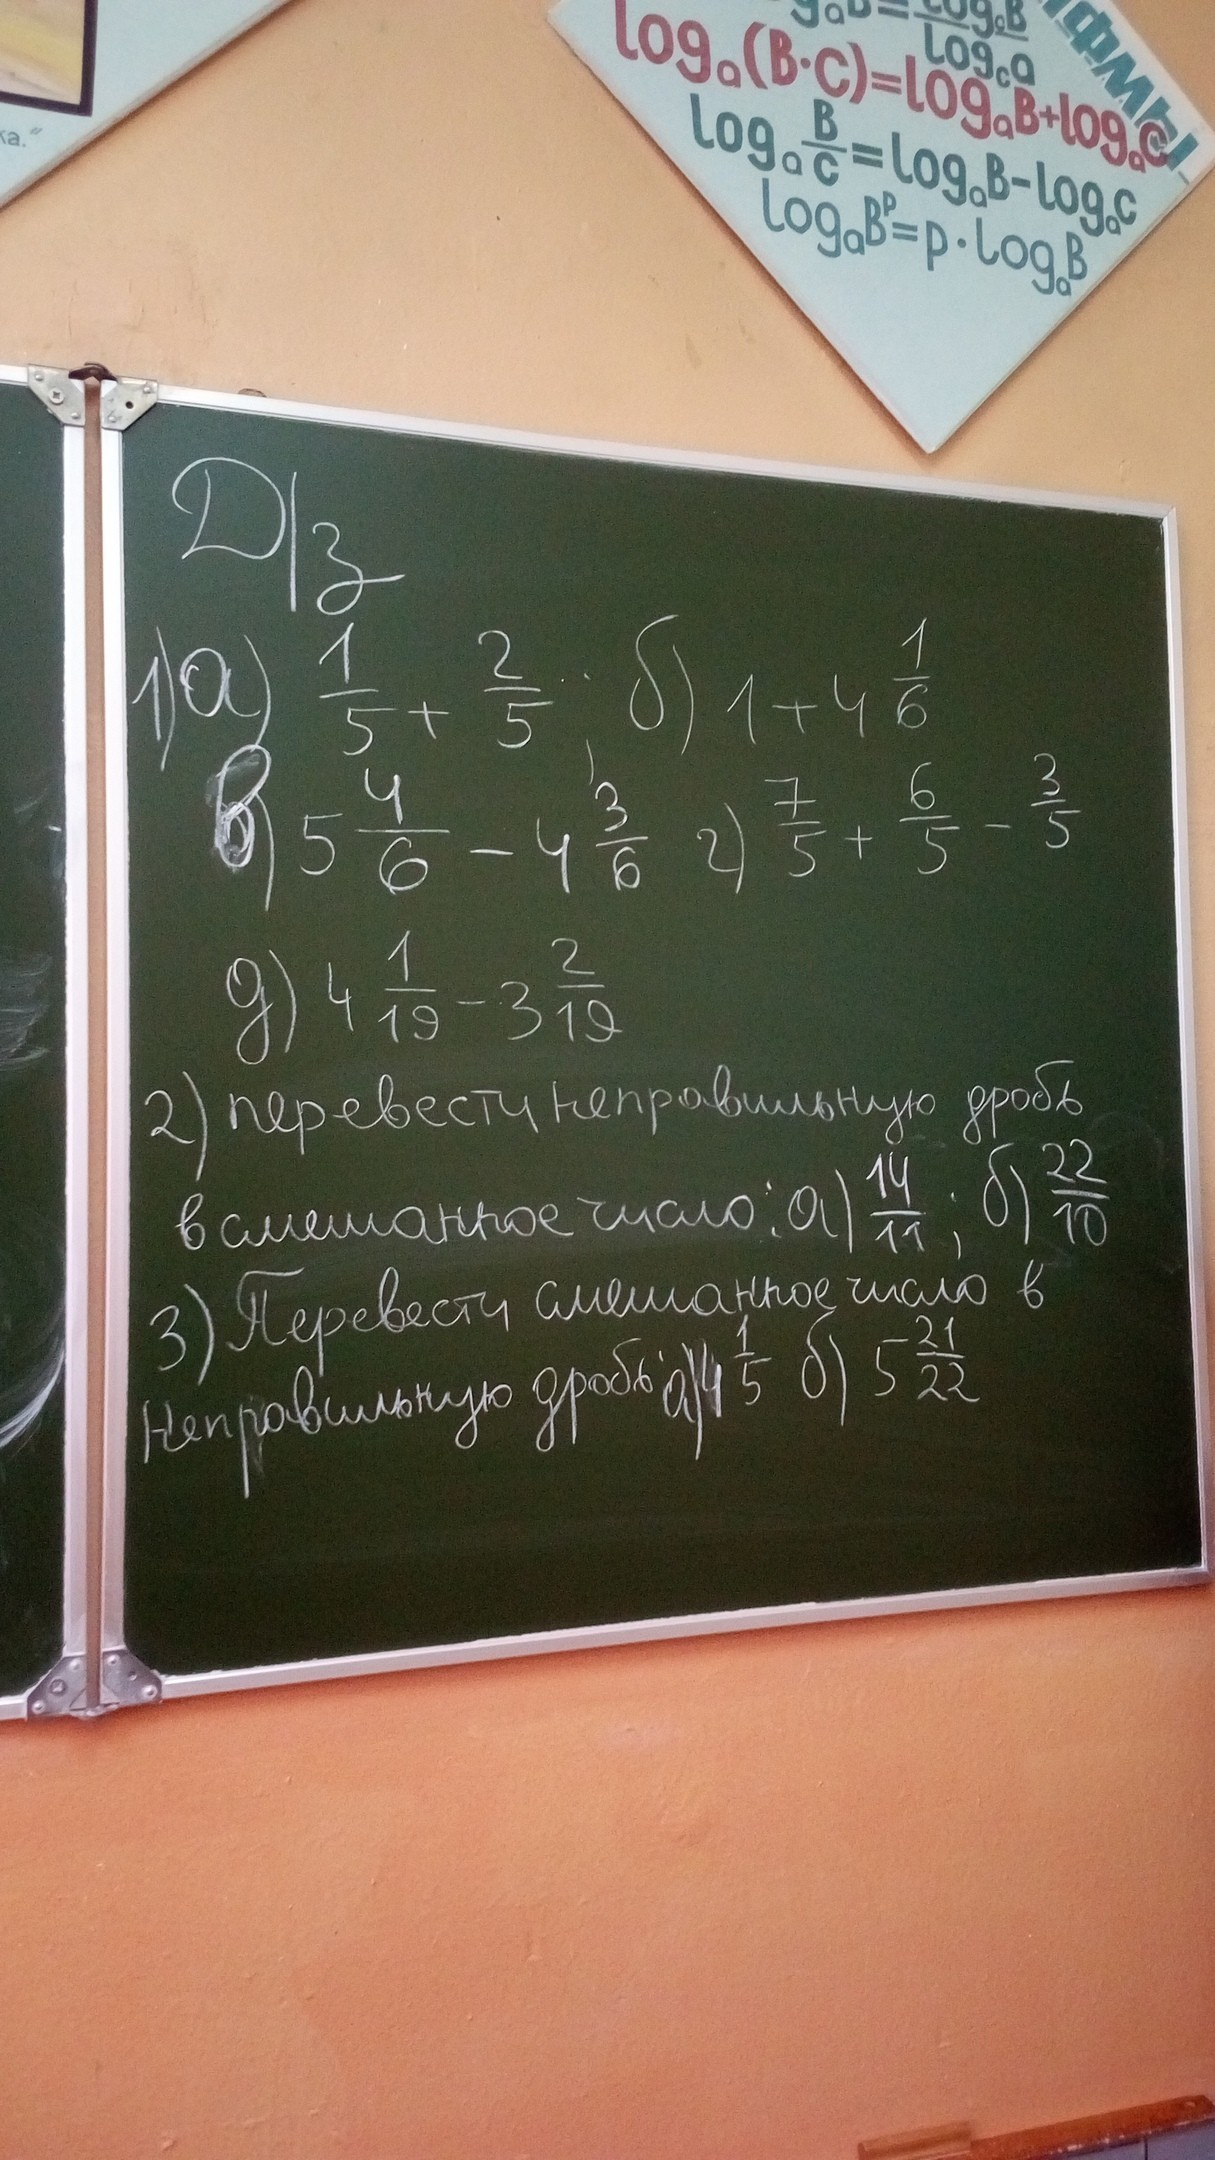 ка."
log_a B = log_c B / log_c a
log_a(B·C)=log_a B+log_a C
log_a B/C = log_a B - log_a C
log_a B^p = p · log_a B
Д/з
1) а) 1/5 + 2/5; б) 1 + 4 1/6
в) 5 4/6 - 4 3/6 г) 7/5 + 6/5 - 3/5
д) 4 1/19 - 3 2/19
2) перевести неправильную дробь
в смешанное число: а) 14/11; б) 22/10
3) Перевести смешанное число в
неправильную дробь: а) 4 1/5 б) 5 21/22